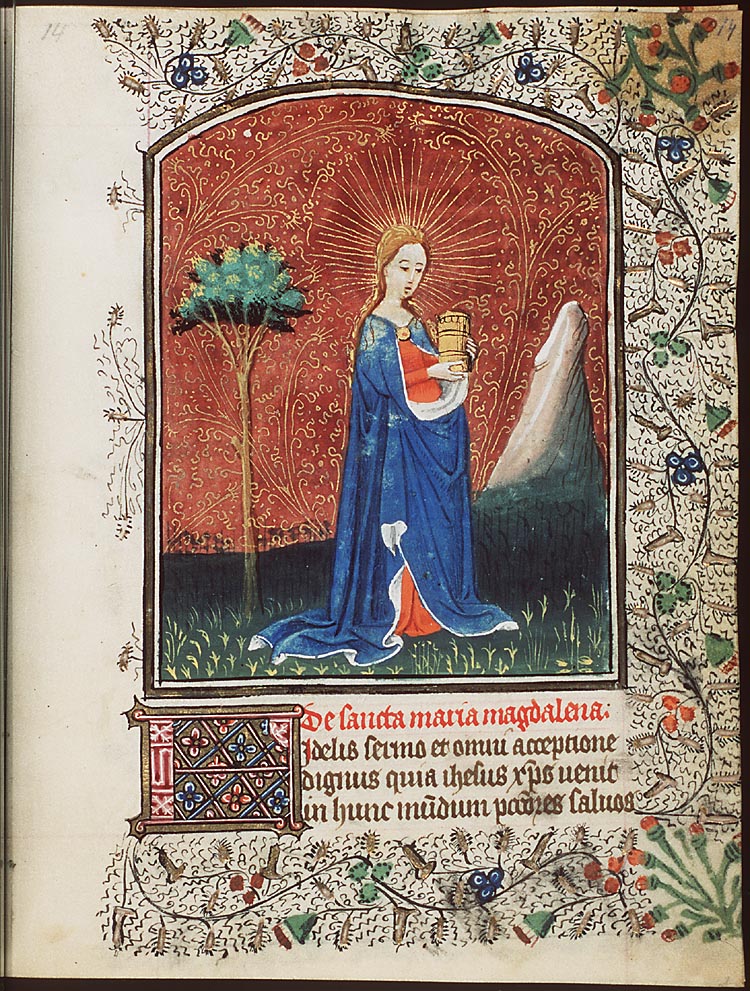 14 14
De sancta maria magdalena:
Fidelis sermo et omni acceptione
dignus quia ihesus xp̄s uenit
in hunc mūdum pctōres saluos